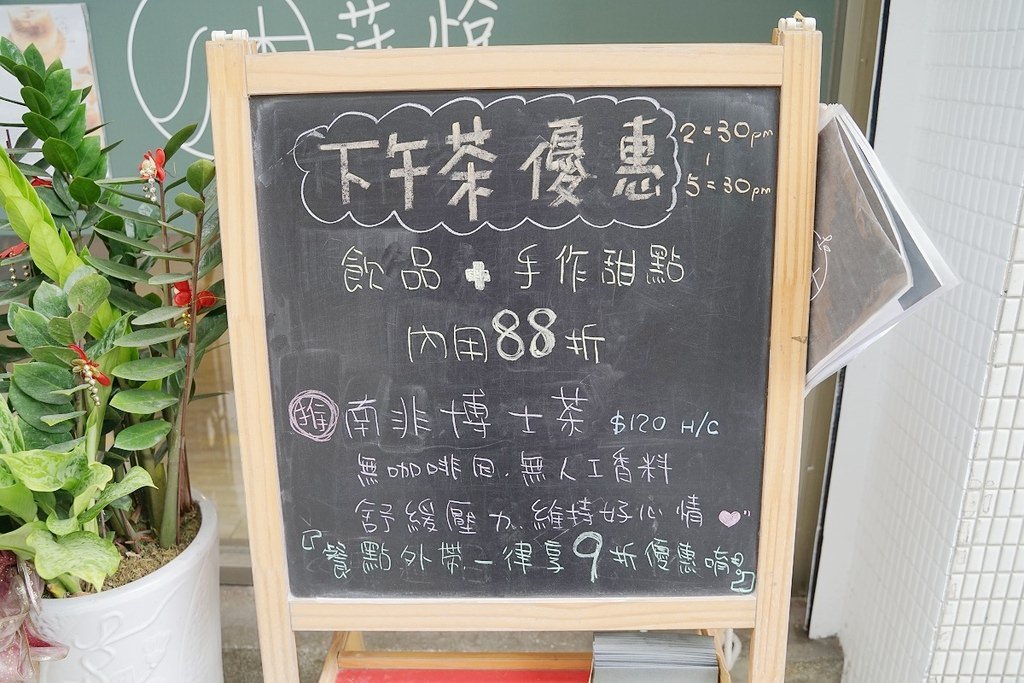 下午茶優惠
2:30pm
|
5:30pm
飲品+手作甜點
內用88折
推 南非博士茶 $120 H/C
無咖啡因.無人工香料
舒緩壓力.維持好心情
『餐點外帶.一律享9折優惠唷!!』